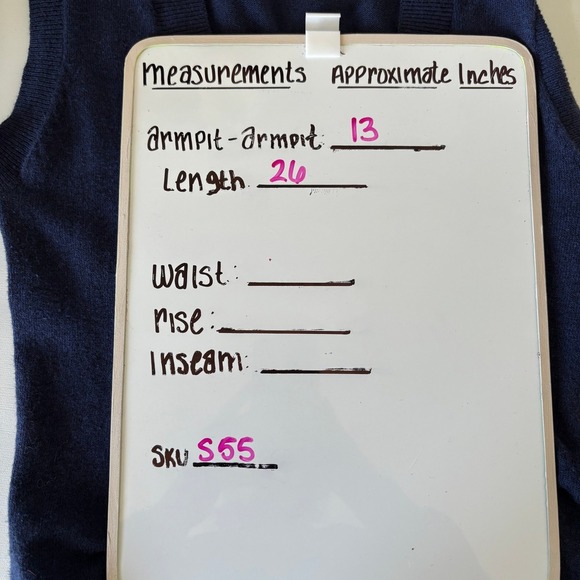 measurements Approximate Inches
armpit-armpit: 13
Length 26
waist:
rise:
inseam:
SKU S55